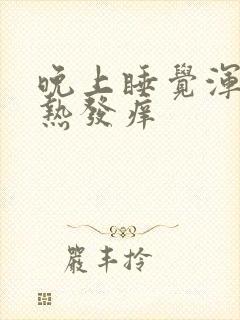 晚上睡覺渾
熱發痒
嚴丰拎